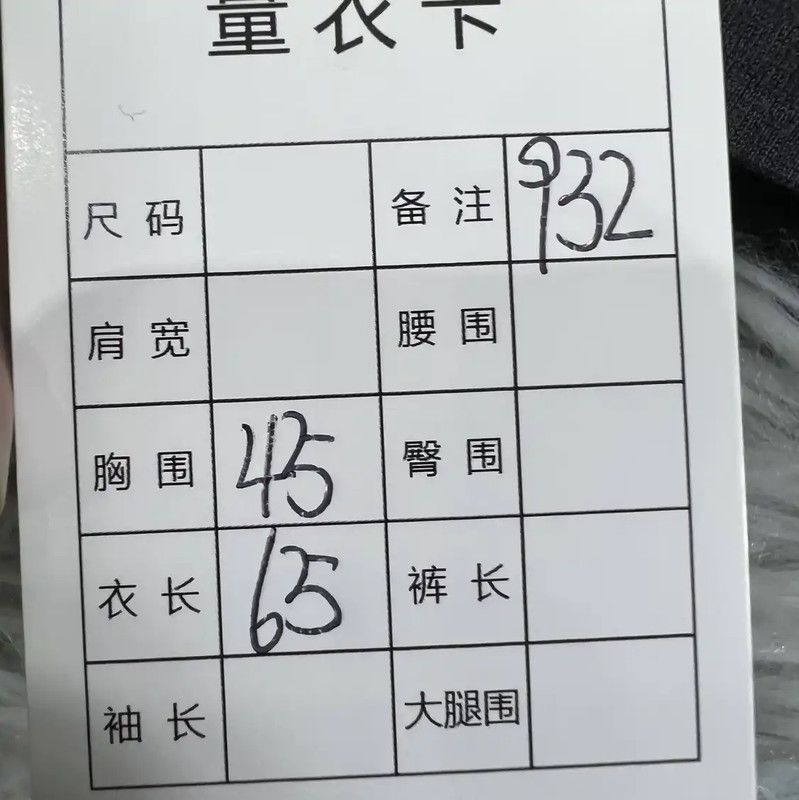 量衣卡
尺码 备注 932
肩宽 腰围
胸围 45 臀围
衣长 65 裤长
袖长 大腿围